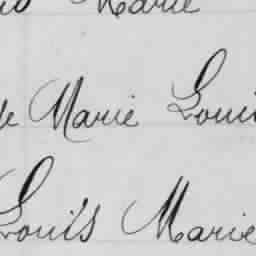 Marie
de Marie Louis
Louis Marie